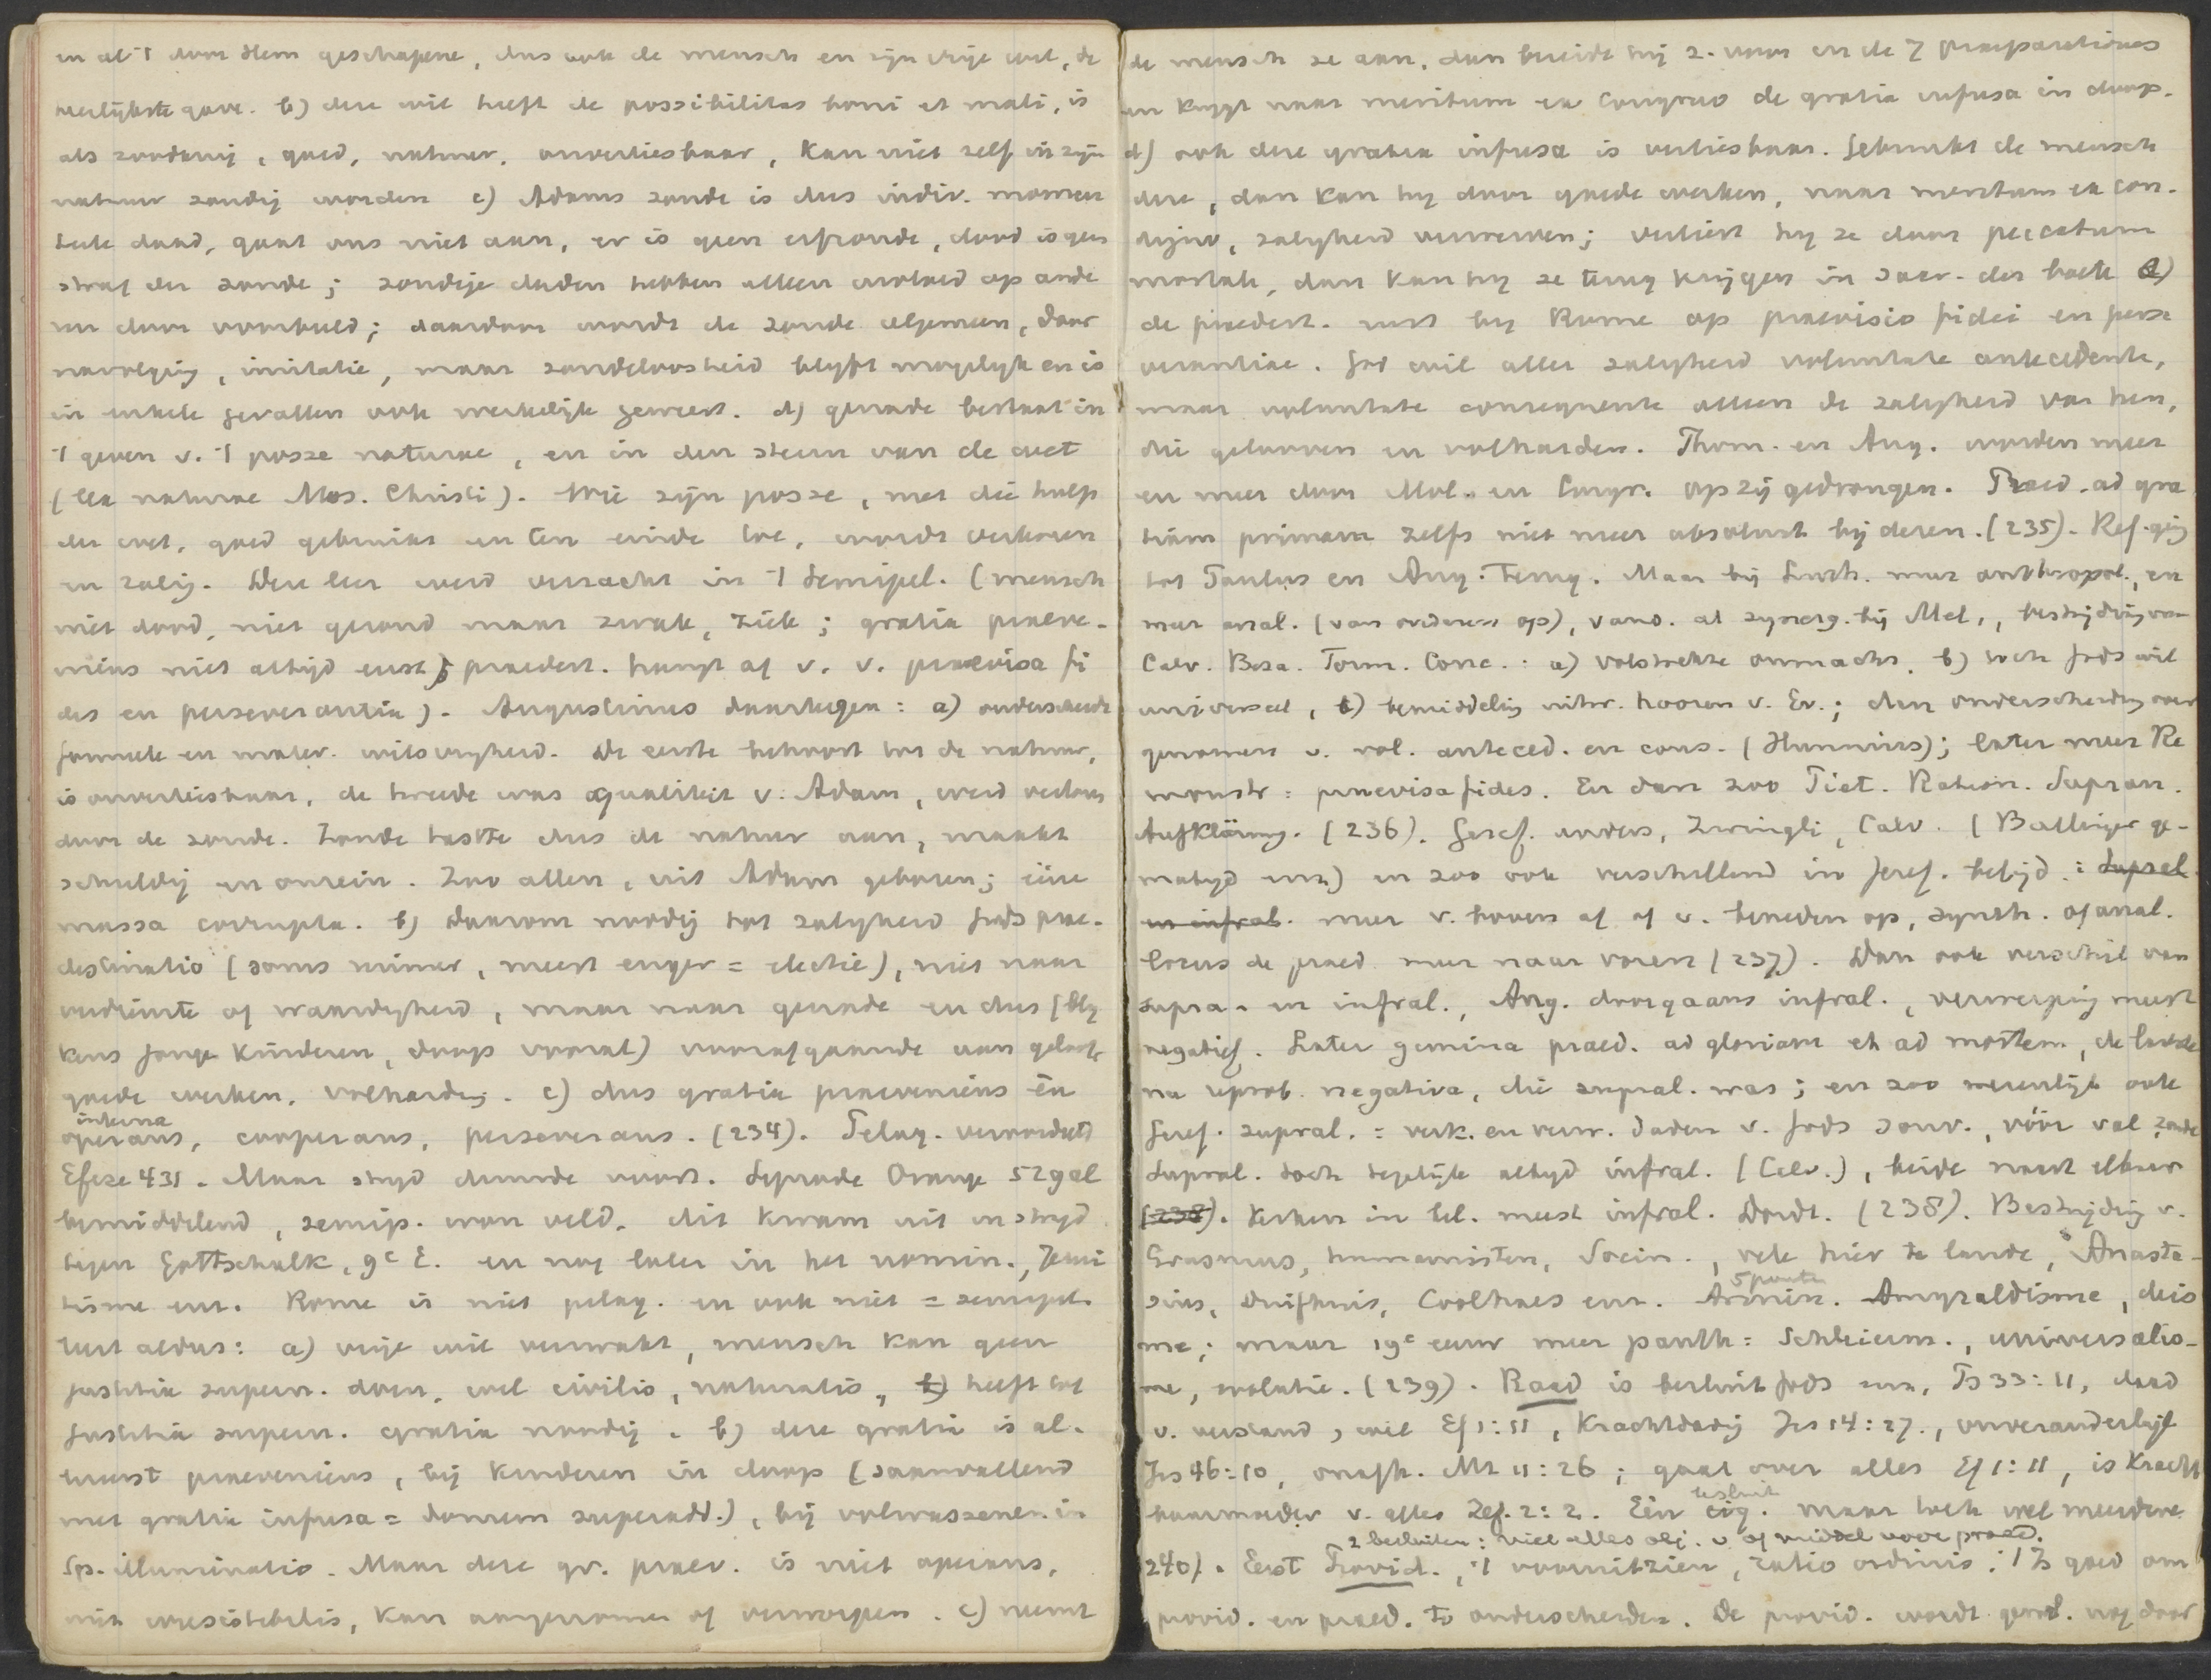 en al 't door Hem geschapene, dus ook de mensch en zijn vrije wil, de
heerlijkste gave. b) deze wil heeft de possibilitas boni et mali, is
als zoodanig, goed, natuur, onverliesbaar, kan niet zelf in zijn
natuur zondig worden c) Adams zonde is dus indiv. momen
teele daad, gaat ons niet aan, er is geen erfzonde, dood is geen
straf der zonde; zondige daden hebben alleen invloed op ande
ren door voorbeeld; daardoor wordt de zonde algemeen, door
navolging, imitatie, maar zondeloosheid blijft mogelijk en is
in enkele gevallen ook werkelijk geweest. d) genade bestaat in
't geven v. 't posse naturae, en in den steun van de wet
(lex naturae Mos. Christi). Wie zijn posse, met die hulp
der wet, goed gebruikt en ten einde toe, wordt verkoren
en zalig. Deze leer werd verzacht in 't Semipel. (mensch
niet dood, niet gezond maar zwak, ziek; gratia praeve-
niens niet altijd eerst; praedest. hangt af v. v. praevisa fi
des en perseverantia). Augustinus daartegen: a) onderscheidt
formeele en mater. wilsvrijheid. De eerste behoort tot de natuur,
is onverliesbaar, de tweede was qualiteit v. Adam, werd verloren
door de zonde. Zonde tastte dus de natuur aan, maakt
schuldig en onrein. Zoo allen, uit Adam geboren; ééne
massa corrupta. b) daarom noodig tot zaligheid Gods prae-
destinatio (soms ruimer, meest enger = electie), niet naar
verdienste of waardigheid, maar naar genade en dus (blij
kens jonge kinderen, doop vooral) voorafgaande aan geloof
goede werken, volharding. c) dus gratia praeveniens én
interna
operans, cooperans, perseverans. (234). Pelag. veroordeeld
Efeze 431. Maar strijd duurde voort. Synode Orange 529 al
bemiddelend, semip. won veld. dit kwam uit in strijd
tegen Gottschalk, 9e E. en nog later in het nomin., Jezui
tisme enz. Rome is niet pelag. en ook niet = semipel.
leert aldus: a) vrije wil verzwakt, mensch kan geen
justitia supern. doen, wel civilis, naturalis, b) heeft tot
justitia supern. gratia noodig. b) deze gratia is al-
lereerst praeveniens, bij kinderen in doop (saamvallend
met gratia infusa = donum superadd.), bij volwassenen in
Sp. illuminatio. Maar deze gr. praev. is niet operans,
niet irresistibilis, kan aangenomen of verworpen. c) neemt
de mensch ze aan, dan bereidt hij z. voor en de 7 praeparationes
en krijgt naar meritum ex congruo de gratia infusa in doop.
d) ook deze gratia infusa is verliesbaar. Gebruikt de mensch
deze, dan kan hij door goede werken, naar meritum ex con-
digno, zaligheid verwerven; verliest hij ze door peccatum
mortale, dan kan hij ze terug krijgen in sacr. der boete e)
de praedest. rust bij Rome op praevisio fidei en perse
verantiae. God wil aller zaligheid voluntate antecedente,
maar voluntate consequente alleen de zaligheid van hen,
die gelooven en volharden. Thom. en Aug. worden meer
en meer door Mol. en Congr. op zij gedrongen. Praed. ad gra
tiam primam zelfs niet meer absoluut bij dezen. (235). Ref. ging
tot Paulus en Aug. terug. Maar bij Luth. meer anthropol., en
meer anal. (van onderen op), vand. al synerg. bij Mel., bestrijding van
Calv. Beza. Form. Conc.: a) volstrekte onmacht, b) toch Gods wil
universeel, c) bemiddeling uitw. hooren v. Ev.; dan onderscheiding over
genomen v. vol. anteced. en cons. (Hunnius); later meer Re
monstr: praevisa fides. En dan zoo Piet. Ration. Supran.
Aufklärung. (236). Geref. anders, Zwingli, Calv. (Bullinger ge-
matigd enz) en zoo ook verschillend in Geref. belijd.: Supral
en infral. meer v. boven af of v. beneden op, synth. of anal.
locus de praed meer naar voren (237). Dan ook verschil van
supra- en infral., Aug. doorgaans infral., verwerping meest
negatief. Later gemina praed. ad gloriam et ad mortem, de laatste
na reprob. negativa, die supral. was; en zoo wezenlijk ook
Geref. supral. = verk. en verw. daden v. Gods souv., vóór val, zonde
Supral. toch tegelijk altijd infral. (Calv.), beide naast elkaar
(238). Kerken in bel. meest infral. Dordt. (238). Bestrijding v.
Erasmus, humanisten, Socin., vele hier te lande, Anasta-
5 punten
sius, Duifhuis, Coolhaes enz. Armin. Amyraldisme, deis
me; maar 19e eeuw meer panth: Schleierm., universalis-
me, evolutie. (239). Raad is besluit Gods enz, Ps 33:11, daad
v. verstand, wil Ef 1:11, krachtdadig Jes 14:27., onveranderlijk
Jes 46:10, onafh. Mt 11:26; gaat over alles Ef 1:11, is kracht
besluit
baarmoeder v. alles Zef. 2:2. Eén eig. maar toch wel meerdere
2 besluiten: viel alles obj. v. of middel voor praed.
240). Eerst Provid., 't vooruitzien, ratio ordinis. 't Is goed om
provid. en praed. te onderscheiden. De provid. wordt geref. nog door